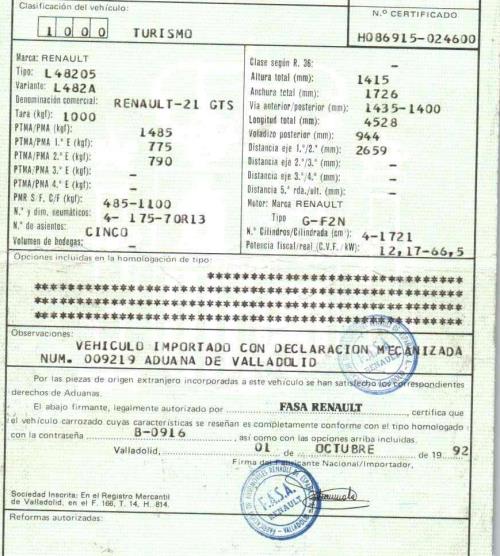 Clasificación del vehículo:
1 0 0 0 TURISMO
N.º CERTIFICADO
H086915-024600
Marca: RENAULT
Tipo: L48205
Variante: L482A
Denominación comercial: RENAULT-21 GTS
Tara (kgf): 1000
PTMA/PMA (kgf): 1485
PTMA/PMA 1.º E (kgf): 775
PTMA/PMA 2.º E (kgf): 790
PTMA/PMA 3.º E (kgf): –
PTMA/PMA 4.º E (kgf): –
PMR S/F, C/F (kgf): 485-1100
N.º y dim. neumáticos: 4- 175-70R13
N.º de asientos: CINCO
Volumen de bodegas: –
Clase según R. 36: –
Altura total (mm): 1415
Anchura total (mm): 1726
Vía anterior/posterior (mm): 1435-1400
Longitud total (mm): 4528
Voladizo posterior (mm): 944
Distancia eje 1.º/2.º (mm): 2659
Distancia eje 2.º/3.º (mm): –
Distancia eje 3.º/4.º (mm): –
Distancia 5.ª rda./ult. (mm): –
Motor: Marca RENAULT
Tipo G-F2N
N.º Cilindros/Cilindrada (cm³): 4-1721
Potencia fiscal/real (C.V.F./kW): 12,17-66,5
Opciones incluidas en la homologación de tipo:
Observaciones:
VEHICULO IMPORTADO CON DECLARACION MECANIZADA
NUM. 009219 ADUANA DE VALLADOLID
Por las piezas de origen extranjero incorporadas a este vehículo se han satisfecho los correspondientes
derechos de Aduanas.
El abajo firmante, legalmente autorizado por FASA RENAULT, certifica que
el vehículo carrozado cuyas características se reseñan es completamente conforme con el tipo homologado
con la contraseña B-0916, así como con las opciones arriba incluidas.
Valladolid, 01 de OCTUBRE de 19 92
Firma del Fabricante Nacional/Importador,
F.A.S.A.
RENAULT
Sociedad Inscrita: En el Registro Mercantil
de Valladolid, en el F. 166, T. 14, H. 814.
Reformas autorizadas: